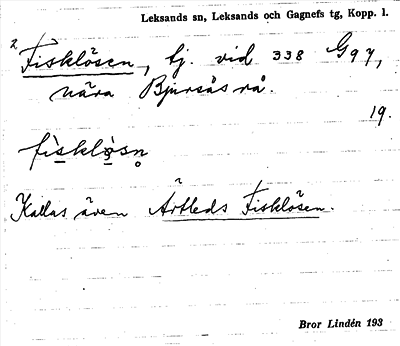 Leksands sn, Leksands och Gagnefs tg, Kopp. l.
2 Fisklösen, tj. vid 338 G97,
nära Bjursås rå.
19.
fìsklòsn̥
Kallas även Ärtleds Fisklösen.
Bror Lindén 193